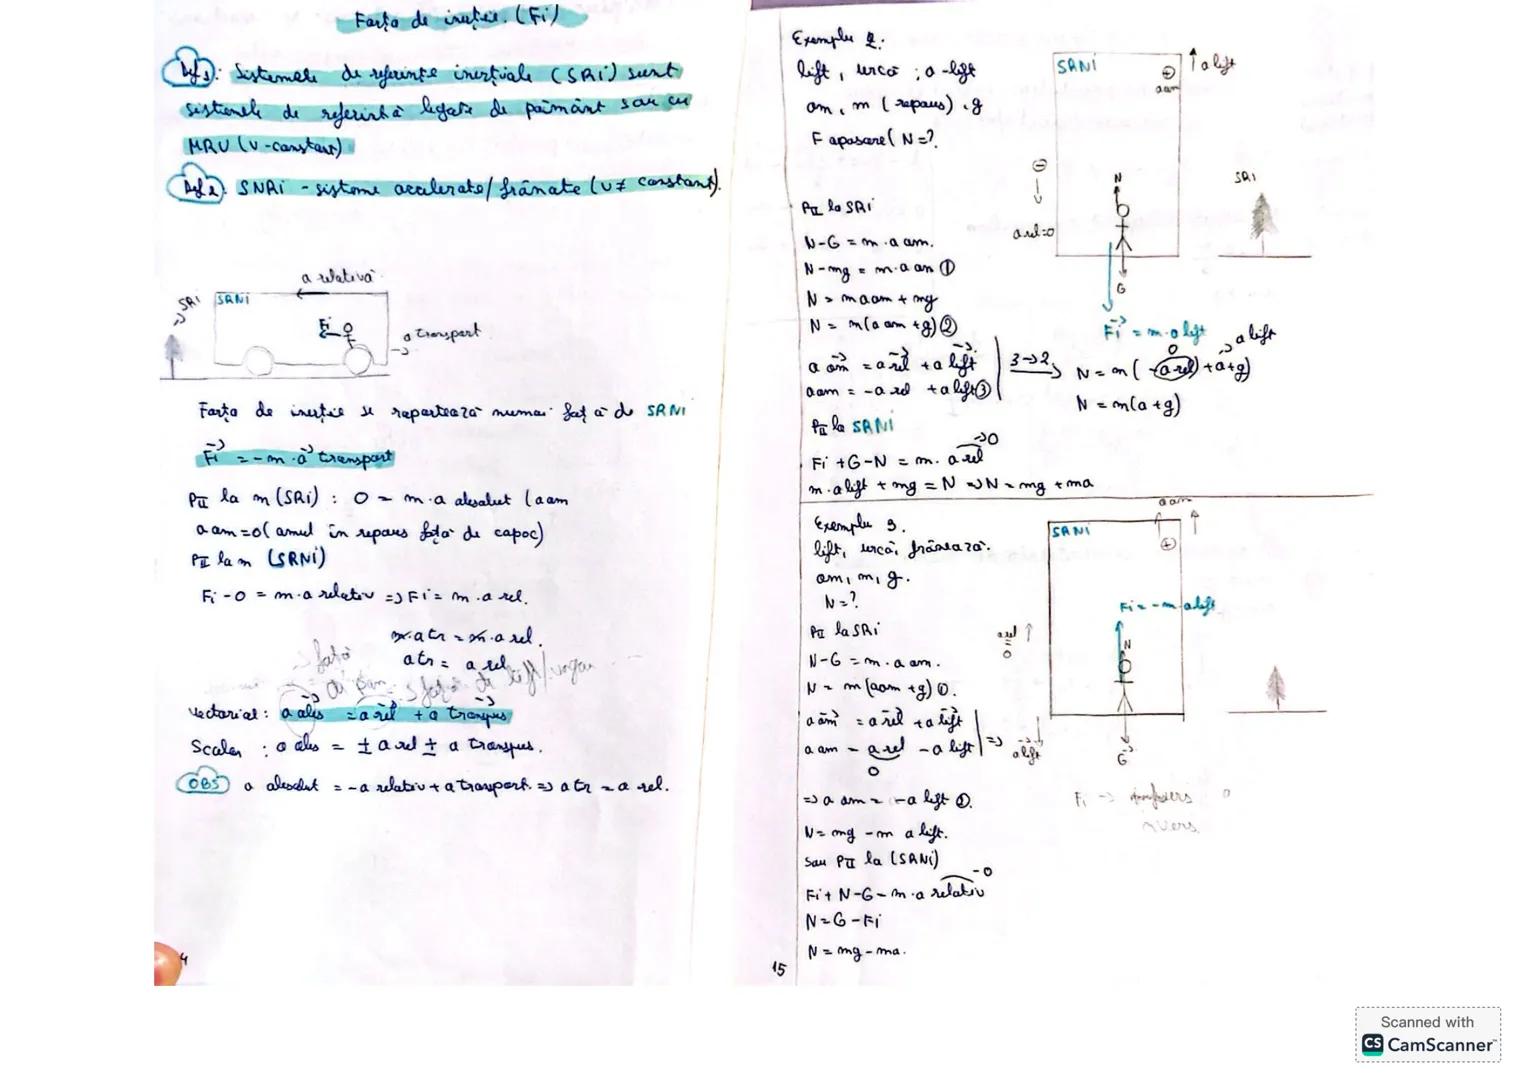 Forța de inerție. (Fi)
Def 1: Sistemele de referință inerțiale (SRi) sunt
sistemele de referință legate de pământ sau cu
MRU (v-constant)
Def 2: SNRi - sisteme accelerate/frânate (v ≠ constant).
a relativă
SRi
SRNi
Fi
a transport
Forța de inerție se repartează numai față de SRNi
Fi = -m·a transport
PII la m (SRi) : 0 = m·a absolut (aam
aam=0( omul în repaus față de capoc)
PII la m (SRNi)
Fi - 0 = m·a relativ => Fi = m·a rel.
m·atr = m·a rel.
atr = a rel
față
Vectorial: a abs = a rel + a transpus
Scalar : a abs = ± a rel ± a transpus.
OBS a absolut = -a relativ + a transport. => a tr = a rel.
4
Exemplu 2.
lift, urcă ; a-lift
om, m (repaus), g
F apasare( N=?
SRNi
+
aam
a lift
N
G
a rel=0
SRi
Fi = m·a lift
PII la SRi
N-G = m·a am.
N-mg = m·a am ①
N = maam + mg
N = m(a am +g) ②
a am = a rel + a lift
aam = -a rel + a lift ③
3→2
0
a lift
N = m(-a rel + a + g)
N = m(a+g)
PII la SRNi
Fi + G - N = m·a rel → 0
m·a lift + mg = N => N = mg + ma
Exemplu 3.
lift, urcă, frânează.
om, m, g.
N=?
SRNi
a am
+
Fi = -m·a lift
N
G
a rel
0
a lift
PII la SRi
N-G = m·a am.
N = m(aam +g) ①.
a am = a rel + a lift
a am = a rel - a lift =>
0
=> a am = -a lift ②.
N = mg - m a lift.
Sau PII la (SRNi)
Fi + N - G = m·a relativ → 0
N = G - Fi
N = mg - ma.
15
Scanned with
CS CamScanner